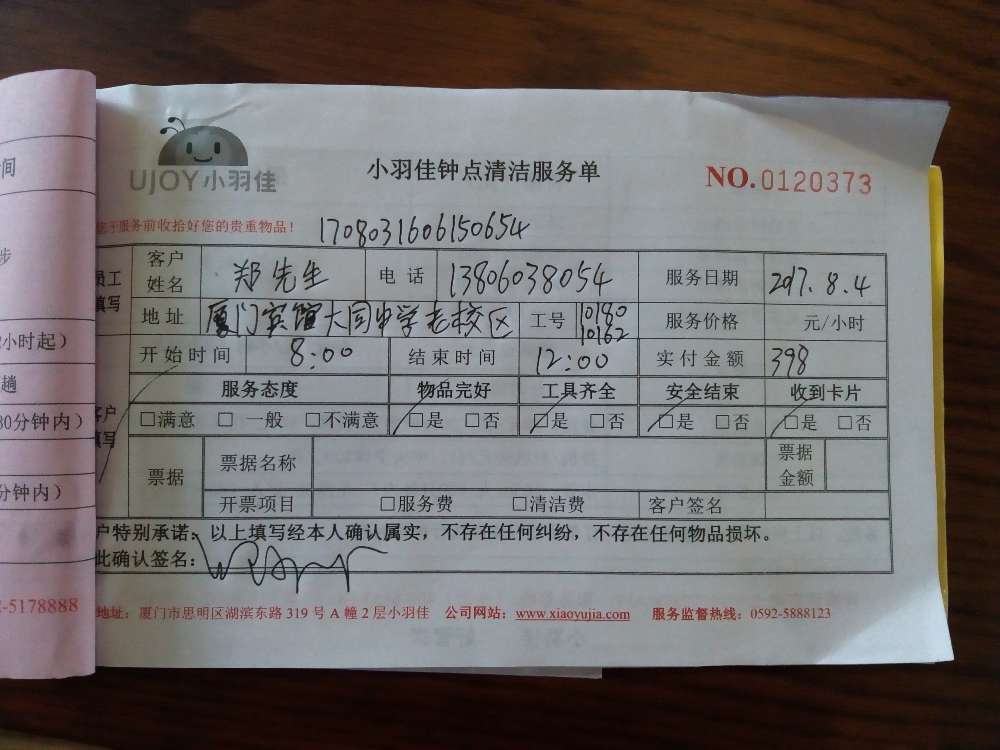 间
步
小时起）
趟
30分钟内）
分钟内）
-5178888
UJOY小羽佳
小羽佳钟点清洁服务单
NO.0120373
于服务前收拾好您的贵重物品！
1708031606150654
员工填写
客户姓名 郑先生 电话 13806038054 服务日期 2017.8.4
地址 厦门宾馆大同中学老校区 工号 10180 10182 服务价格 元/小时
开始时间 8:00 结束时间 12:00 实付金额 398
客户填写
服务态度 物品完好 工具齐全 安全结束 收到卡片
□满意 □一般 □不满意 □是 □否 □是 □否 □是 □否 □是 □否
票据 票据名称 票据金额
开票项目 □服务费 □清洁费 客户签名
户特别承诺：以上填写经本人确认属实，不存在任何纠纷，不存在任何物品损坏。
此确认签名：
地址：厦门市思明区湖滨东路319号A幢2层小羽佳 公司网站：www.xiaoyujia.com 服务监督热线：0592-5888123